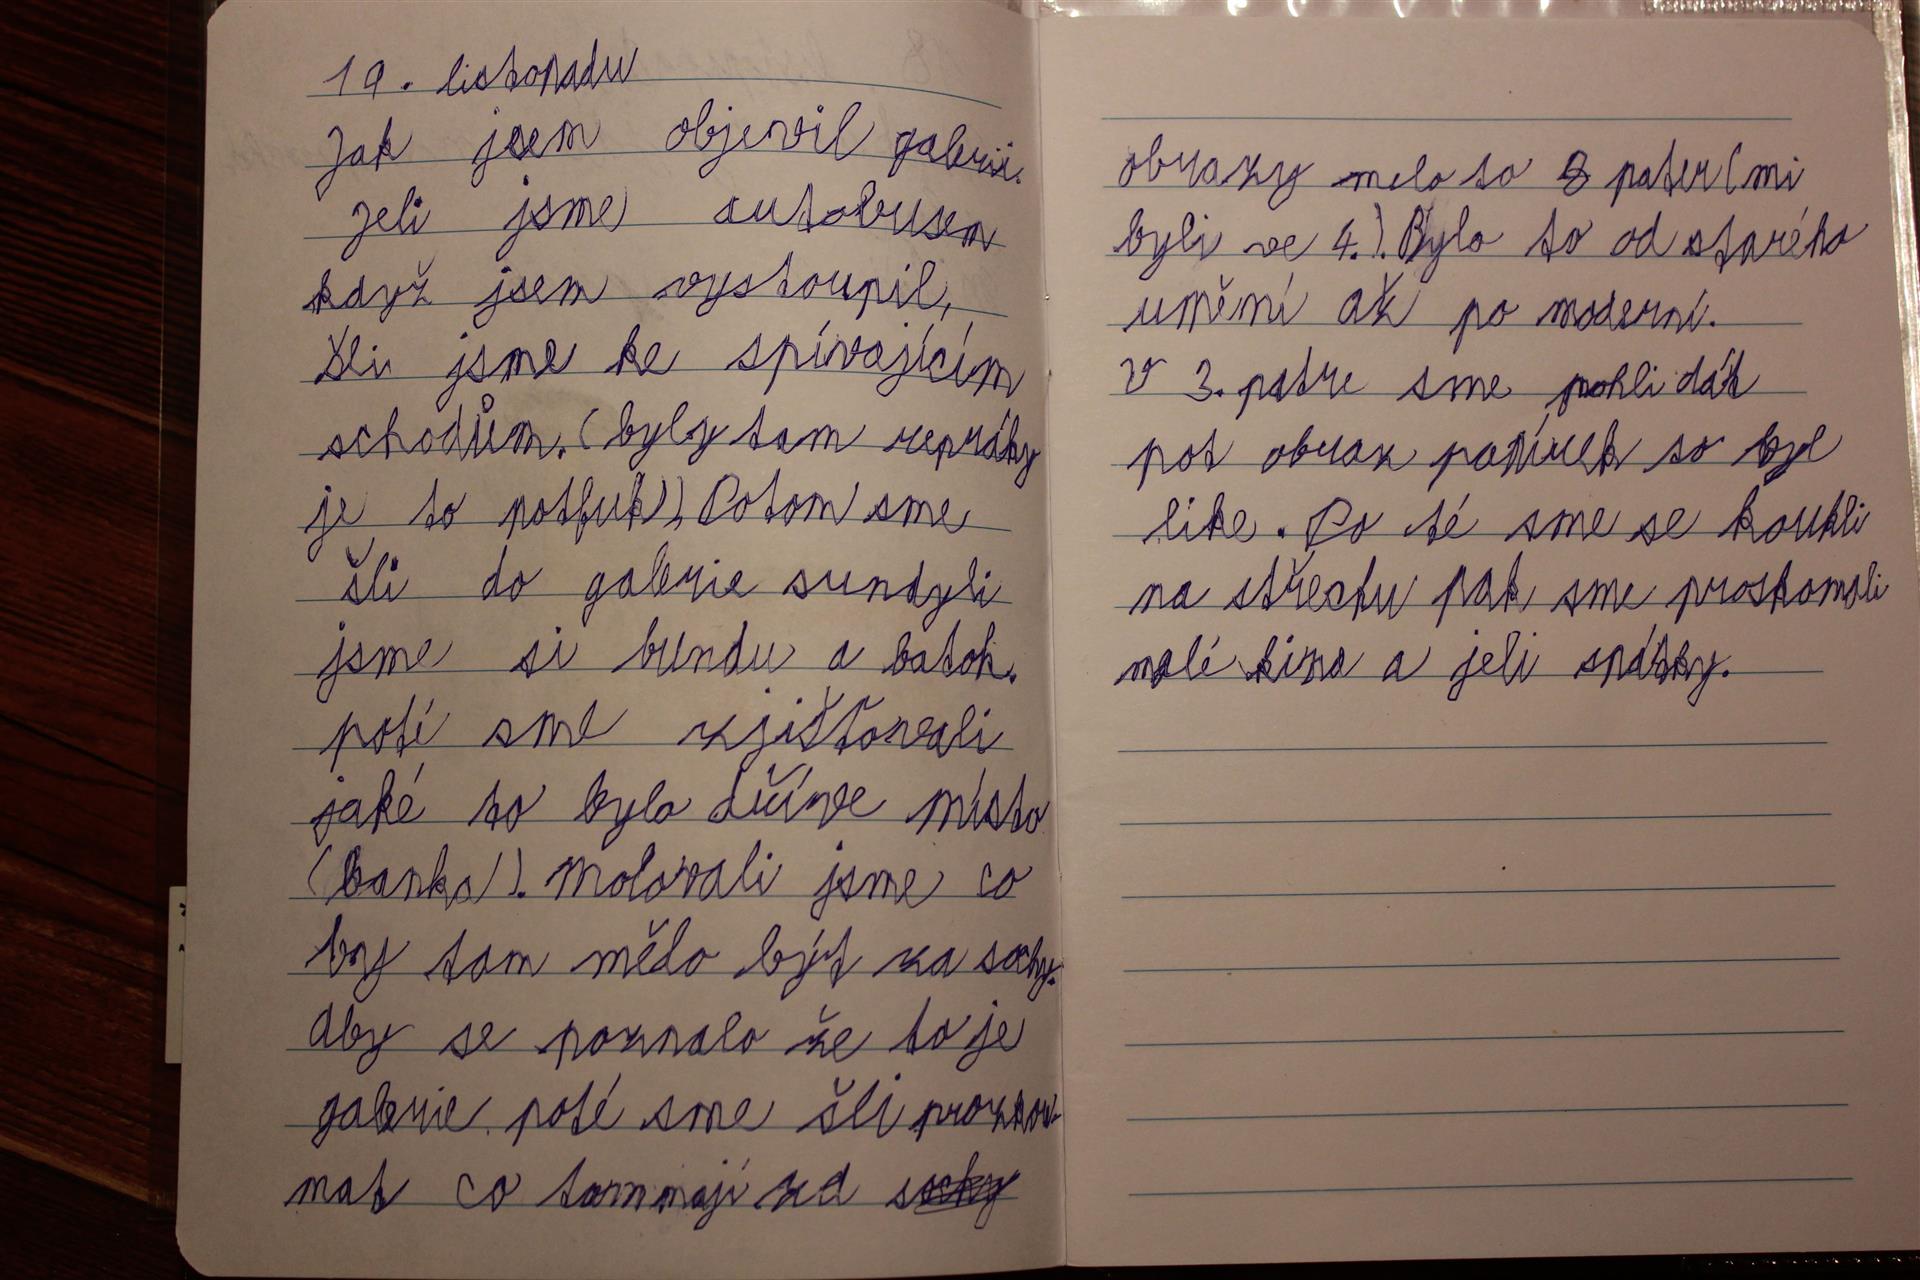 19. listopadu
Jak jsem objevil galerii.
Jeli jsme autobusem
když jsem vystoupil,
šli jsme ke spívajícím
schodům. (byly tam repráky
je to potfuk). Potom sme
šli do galerie sundyli
jsme si bundu a batoh.
poté sme zjišťovali
jaké to bylo dříve místo
(banka). Malovali jsme co
by tam mělo být za sochy.
aby se poznalo že to je
galerie. poté sme šli prozkou-
mat co tam mají za
obrazy melo to 8 pater (mi
byli ve 4.). Bylo to od starého
umění až po moderní.
V 3. patře sme pohli dát
pot obraz papírek to byl
like. Po té sme se koukli
na střechu pak sme proskomali
malé kina a jeli spátky.